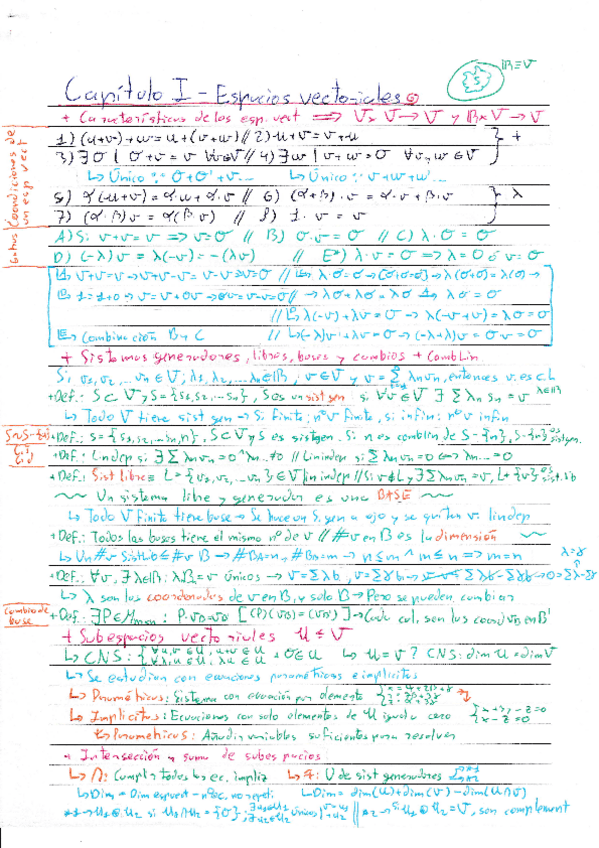 Capítulo I - Espacios vectoriales
S
+ Características de los esp. vect ⟹ V x V → V y R x V → V
Condiciones de un esp vect
1) (u+v)+w = u+(v+w) // 2) u+v = v+u } +
3) ∃ σ | σ+v = v ∀v∈V // 4) ∃ w | v+w = σ ∀v,w∈V
↳ Único ∵ σ+σ'+v... ↳ Único ∵ v+w+w...
5) α(u+v) = α·u+α·v // 6) (α+β)·v = α·v+β·v } λ
7) (α·β)v = α(β·v) // 8) 1·v = v
A) Si v+v=v ⟹ v=σ // B) 0·v=σ // C) λ·σ=σ
D) (-λ)v = λ(-v) = -(λv) // E*) λ·v=σ ⟹ λ=0 ó v=σ
↳ v+v=v → v+v-v=v-v → v=σ // ↳ λ·σ=σ → [σ+σ=σ] → λ(σ+σ)=λ(σ) →
↳ 1=1+0 → v=v+0v → 0v=v-v=σ // → λσ+λσ=λσ → λσ=σ
// ↳ λ(-v)+λv=σ → λ(-v+v)=λσ=σ
↳ Combinación B y C // ↳ (-λ)v+λv=σ → (-λ+λ)v=0·v=σ
+ Sistemas generadores, libres, bases y cambios + Comb lin
Si v₁,v₂,...vn∈V; λ₁,λ₂,...λn∈R, v∈V y v=∑λnvn, entonces v. es c.L
+Def.: S⊂V y S={s₁,s₂,...sn}, S es un sist gen si ∀v∈V ∃ ∑λn sn = v λ∈R
↳ Todo V tiene sist gen → Si finite; nº v finite, si infin: nº v infin
+Def.: S={s₁,s₂,...sn,n}, S⊂V y S es sist gen. Si n es comb lin de S-{n}, S-{n} es sist gen.
+Def.: L indep si ∃ ∑λnvn=0 ^ λn...≠0 // Lin indep si ∑λnvn=0 ⟺ λn...=0
+Def.: Sist libre ≡ L={v₁,v₂,...vn}∈V lin indep // Si v∉L y ∄ ∑λnvn=v, L+{v} es sist. lib
Un sistema libre y generador es una BASE
↳ Todo V finito tiene base → Se hace un S. gen a ojo y se quitan v. lin dep
+Def.: Todas las bases tiene el mismo nº de v // #v en B es la dimensión
+Def.: ∀v, ∃ λ∈R: λB=v únicos → v=∑λb
↳ λ son las coordenadas de v en B, y solo B → Pero se pueden cambiar
Cambio de base
+Def.: ∃P∈Mₙₓₙ : P·vB=vB' [(P)(vB)=(vB')] → Cada col, son las coord vn en B'
+ Subespacios vectoriales U ≤ V
+ σ∈U ↳ U=V? CNS: dim U = dim V
↳ Se estudian con ecuaciones paramétricas e implícitas
↳ Paramétricas: Sistema con ecuación por elemento
↳ Implícitas: Ecuaciones con solo elementos de U igual a cero {x+y-z=0
x-z=0
↳ Paramétricas: Añadir variables suficientes para resolver
+ Intersección y suma de subespacios
↳ ∩: Cumplir todas las ec. implíz ↳ +: U de sist generadores
↳ Dim = Dim esp vect - nº ec. no repeti ↳ Dim = dim(U)+dim(V)-dim(U∩V)
*1 → U₁⊕U₂ si U₁∩U₂={σ} // *2 → Si U₁⊕U₂=V, son complement